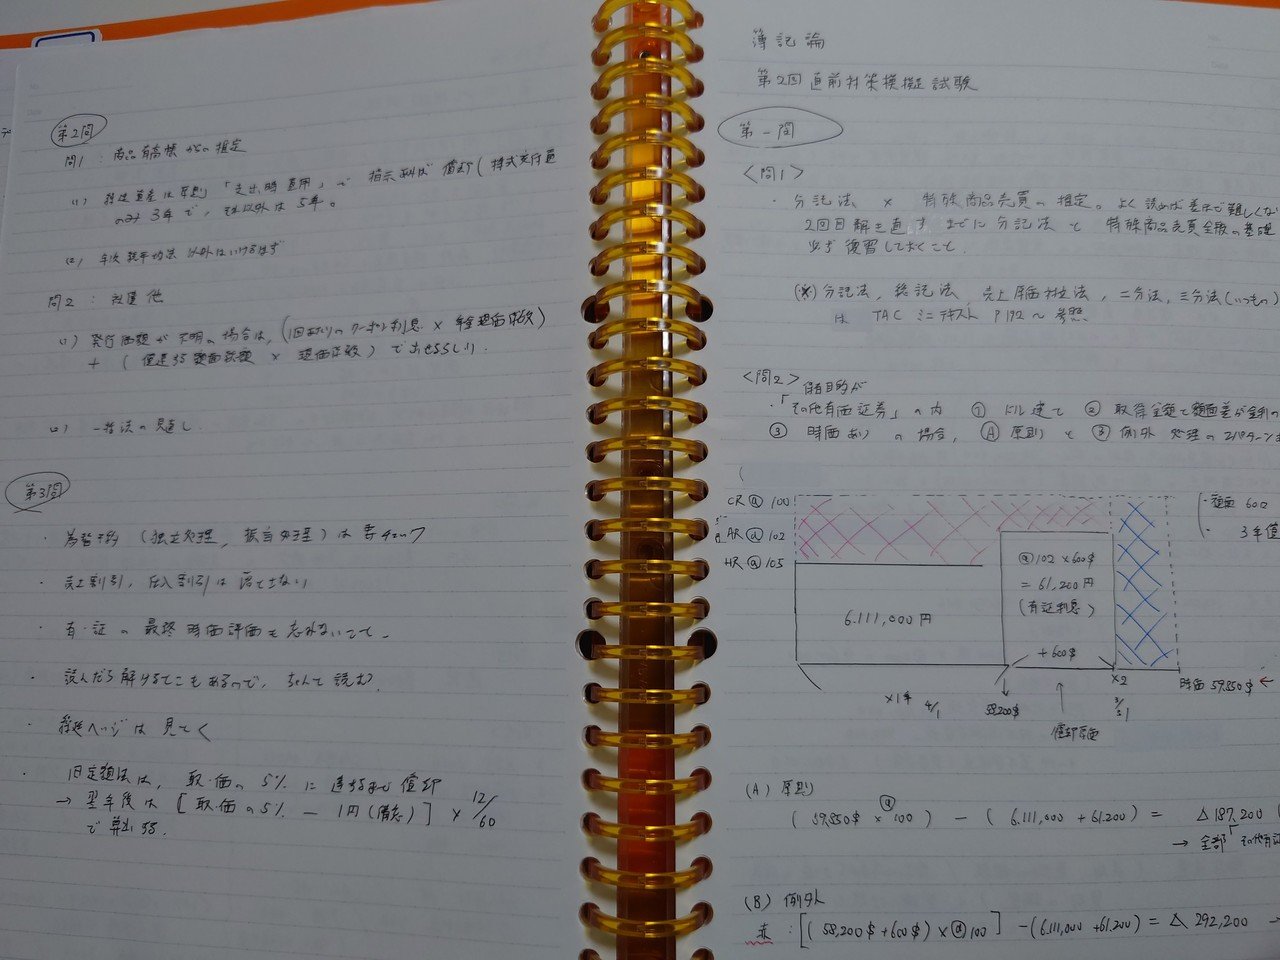 第2問
問1：商品有高帳からの推定
(1) 繰延資産は原則「支出時費用」で 指示あれば 償却(株式交付費
のみ 3年で、それ以外は 5年。
(2) 年次総平均法 以外はいけるはず
問2：社債 他
(1) 発行価額が 不明の場合は、(1回あたりのクーポン利息 × 年金現価係数)
+ ( 償還する額面総額 × 現価係数 ) で出せるらしい。
(2) 一括法の見直し.
第3問
・為替予約 (独立処理, 振当処理) は 要チェック
・売上割引, 仕入割引は 落とさない
・有・証の 最終時価評価も 忘れないこと。
・読んだら解けるとこもあるので, ちゃんと読む.
・最終ページは 見とく
・旧定額法は, 取・価の 5% に 達するまで 償却
→ 翌年後は [ 取・価の5% − 1円(備忘) ] × 12/60
で 算出する.
簿記論
第2回 直前対策模擬試験
第一問
<問1>
・分記法 × 特殊商品売買の 推定。よく読めば 差ほど難しくな
2回目解き直すまでに 分記法と 特殊商品売買全般の基礎
必ず 復習しておくこと.
(※) 分記法, 総記法, 売上原価対立法, 二分法, 三分法(いつもの)
は TAC ミニテキスト P192〜 参照
<問2> 保有目的が
・「その他有価証券」の内 ① ドル建て ② 取得金額と額面差が金利の
③ 時価あり の場合, Ⓐ 原則 と Ⓑ 例外 処理の 2パターン
CR @ 100
AR @ 102
HR @ 105
6.111,000円
@102 × 600$
= 61,200円
(有証利息)
+600$
・額面 60
・3年償
×1年 4/1
58,200$
償却原価
×2
3/31
時価 59,850$ ←
(A) 原則
( 59,850$ × @100 ) − ( 6.111,000 + 61.200 ) = △187,200
→ 全部「その他有証
(B) 例外
赤 : [ ( 58,200$ + 600$ ) × @100 ] − ( 6.111,000 + 61.200 ) = △ 292,200 →